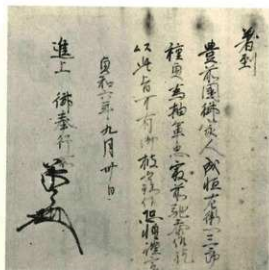 着到
豊前国御家人成恒右衛門三郎
種貞為抽軍忠最前馳参候訖
以此旨可有御披露候恐惶謹言
貞和六年九月廿日
進上 御奉行所